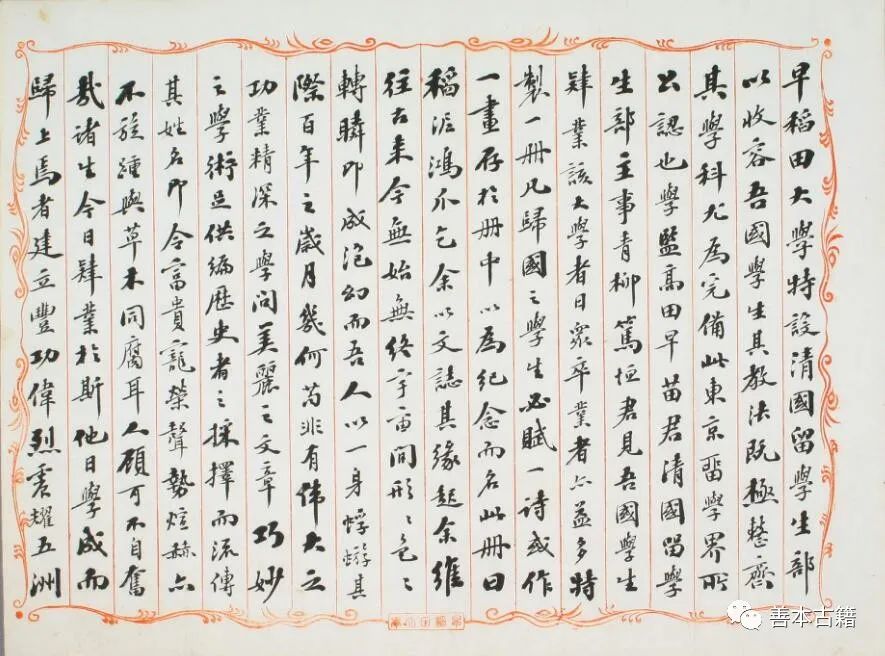 早稻田大學特設清國留學生部
以收容吾國學生其教法既極整齊
其學科尤為完備此東京畱學界所
公認也學監高田早苗君清國留學
生部主事青柳篤恒君見吾國學生
肄業該大學者日衆卒業者亦益多特
製一冊凡歸國之學生必賦一詩或作
一畫存於冊中以為紀念而名此冊曰
稻泥鴻爪乞余以文誌其緣起余維
往古來今無始無終宇宙間形〻色〻
轉瞬即成泡幻而吾人以一身蜉蝣其
際百年之歲月幾何茍非有偉大之
功業精深之學問美麗之文章巧妙
之學術足供編歷史者之採擇而流傳
其姓名即令富貴寵榮聲勢煊赫亦
不旋踵與草木同腐耳人顧可不自奮
哉諸生今日肄業於斯他日學成而
歸上焉者建立豐功偉烈震耀五洲
善本古籍